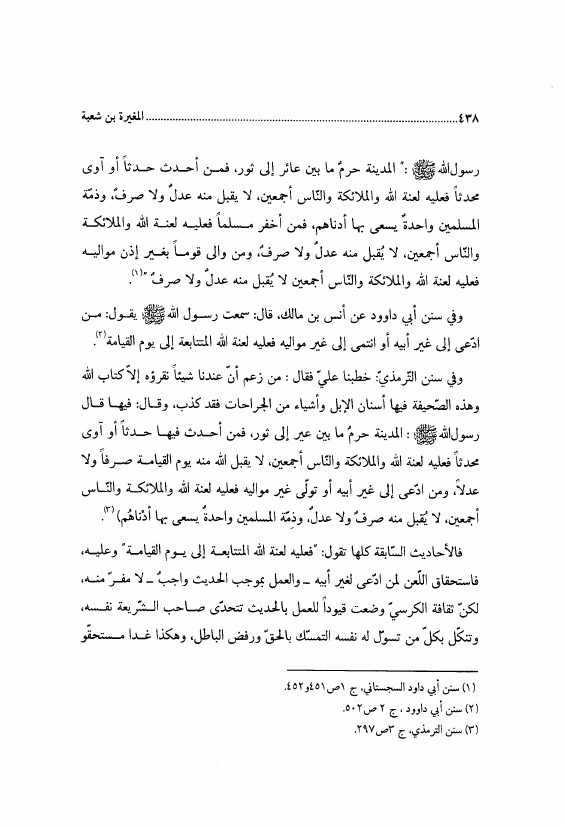 ٤٣٨ ........................................................................................................ المغيرة بن شعبة
رسول الله ﷺ : " المدينة حرمٌ ما بين عائر إلى ثور، فمـن أحـدث حـدثاً أو آوى
محدثاً فعليه لعنة الله والملائكة والنّاس أجمعين، لا يقبل منه عدلٌ ولا صرفٌ، وذمّة
المسلمين واحدةٌ يسعى بها أدناهم، فمن أخفر مـسلماً فعليـه لعنـة الله والملائكـة
والنّاس أجمعين، لا يُقبل منه عدلٌ ولا صرفٌ، ومن والى قومـاً بغـير إذن مواليـه
فعليه لعنة الله والملائكة والنّاس أجمعين لا يُقبل منه عدلٌ ولا صرفٌ "(١).
وفي سنن أبي داوود عن أنس بن مالك، قال: سمعت رسول الله ﷺ يقول: مـن
ادّعى إلى غير أبيه أو انتمى إلى غير مواليه فعليه لعنة الله المتتابعة إلى يوم القيامة(٢).
وفي سنن التّرمذيّ: خطبنا عليّ فقال : من زعم أنّ عندنا شيئاً نقرؤه إلاّ كتاب الله
وهذه الصّحيفة فيها أسنان الإبل وأشياء من الجراحات فقد كذب، وقـال: فيهـا قـال
رسول الله ﷺ : المدينة حرمٌ ما بين عير إلى ثور، فمن أحـدث فيهـا حـدثاً أو آوى
محدثاً فعليه لعنة الله والملائكة والنّاس أجمعين، لا يقبل الله منه يوم القيامـة صـرفاً ولا
عدلاً، ومن ادّعى إلى غير أبيه أو تولّى غير مواليه فعليه لعنة الله والملائكـة والنّـاس
أجمعين، لا يُقبل منه صرفٌ ولا عدلٌ، وذمّة المسلمين واحدةٌ يسعى بها أدْناهُم)(٣).
فالأحاديث السّابقة كلها تقول: "فعليه لعنة الله المتتابعـة إلى يـوم القيامـة" وعليـه،
فاستحقاق اللّعن لمن ادّعى لغير أبيه ــ والعمل بموجب الحديث واجبٌ ــ لا مفـرّ منـه،
لكنّ ثقافة الكرسيّ وضعت قيوداً للعمل بالحديث تتحدّى صـاحب الـشّريعة نفـسه،
وتنكّل بكلّ من تسوّل له نفسه التمسّك بالحقّ ورفض الباطل، وهكذا غـدا مـستحقّو
(١) سنن أبي داود السجستاني، ج ١ص٤٥١و٤٥٢.
(٢) سنن أبي داوود ، ج ٢ ص٥٠٢.
(٣) سنن الترمذي، ج ٣ص٢٩٧.